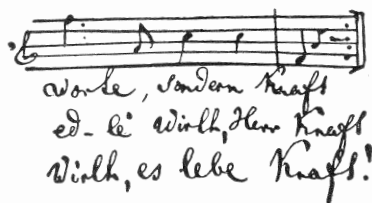 Worte, sondern Kraft
ed-le Wirth, Herr Kraft
Wirth, es lebe Kraft!